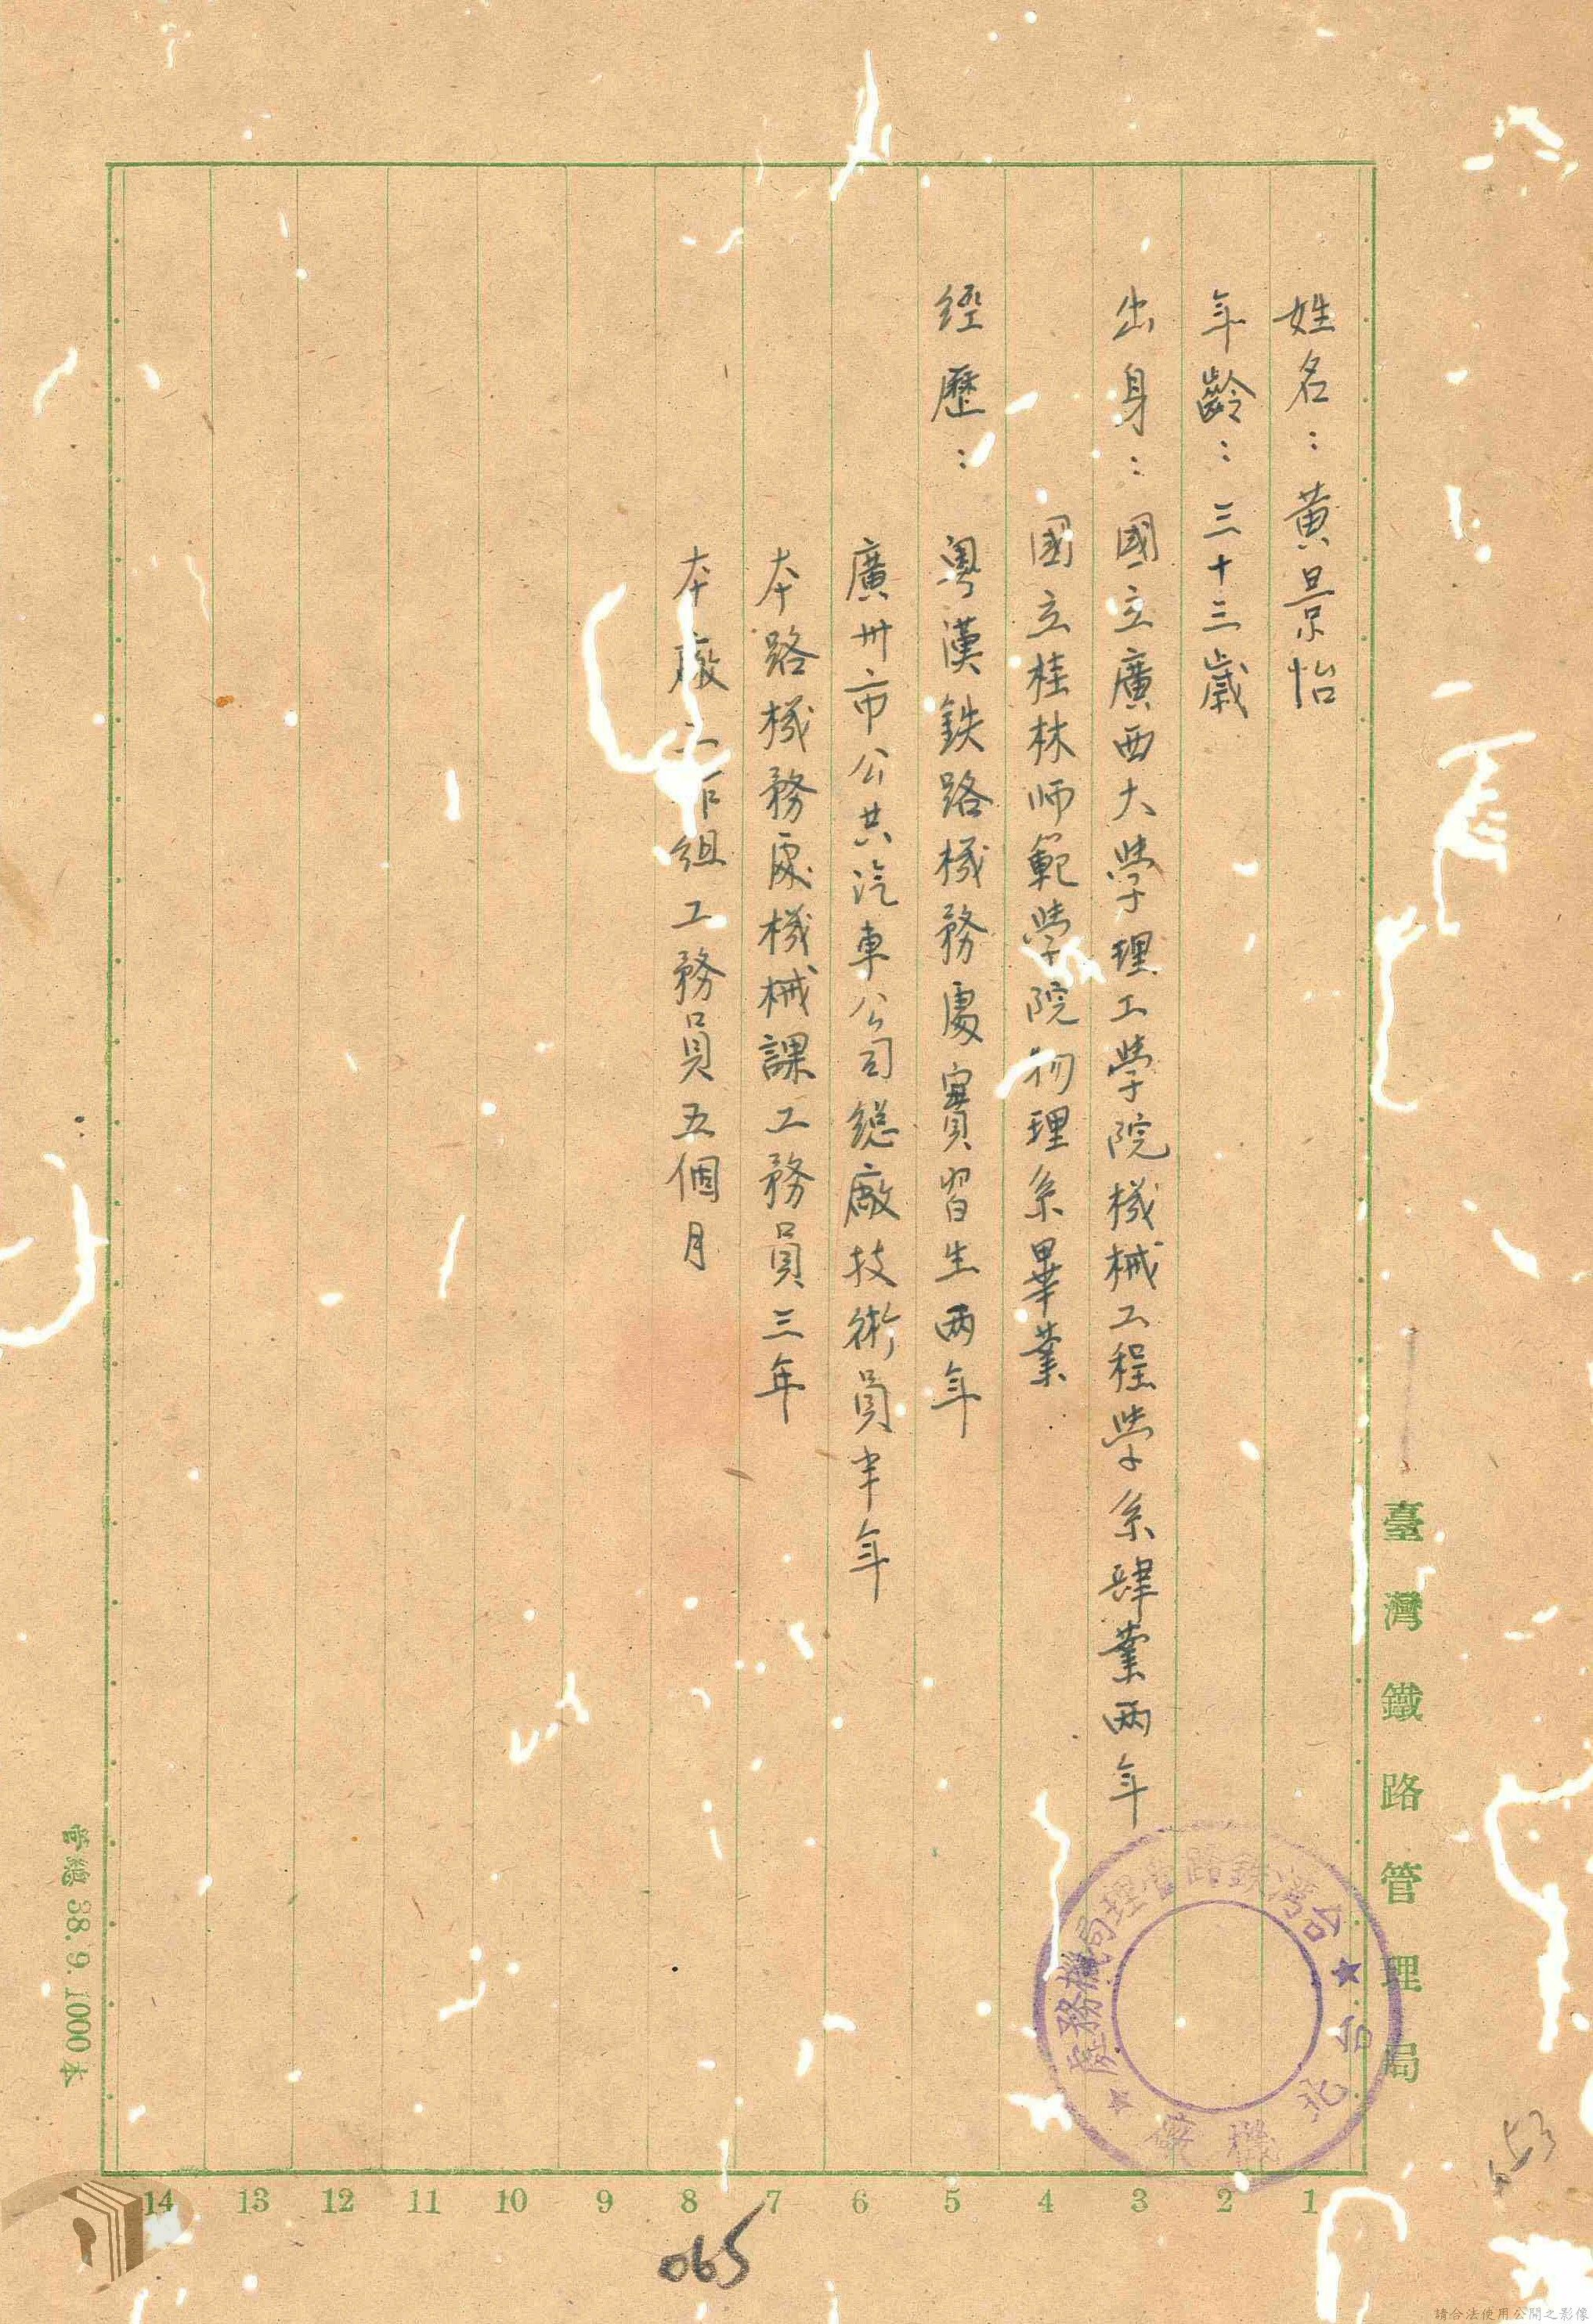 姓名：黄景怡
年齡：三十三歲
出身：國立廣西大學理工學院機械工程學系肄業兩年
國立桂林师範學院物理系畢業
經歷：粵漢鉄路機務處實習生兩年
廣州市公共汽車公司總廠技術員半年
本路機務處機械課工務員三年
本廠工作組工務員五個月
臺灣鐵路管理局
台湾鉄路管理局機務處
台北機廠
管總 38.9.1000本
14 13 12 11 10 9 8 7 6 5 4 3 2 1
065
053
請合法使用公開之影像